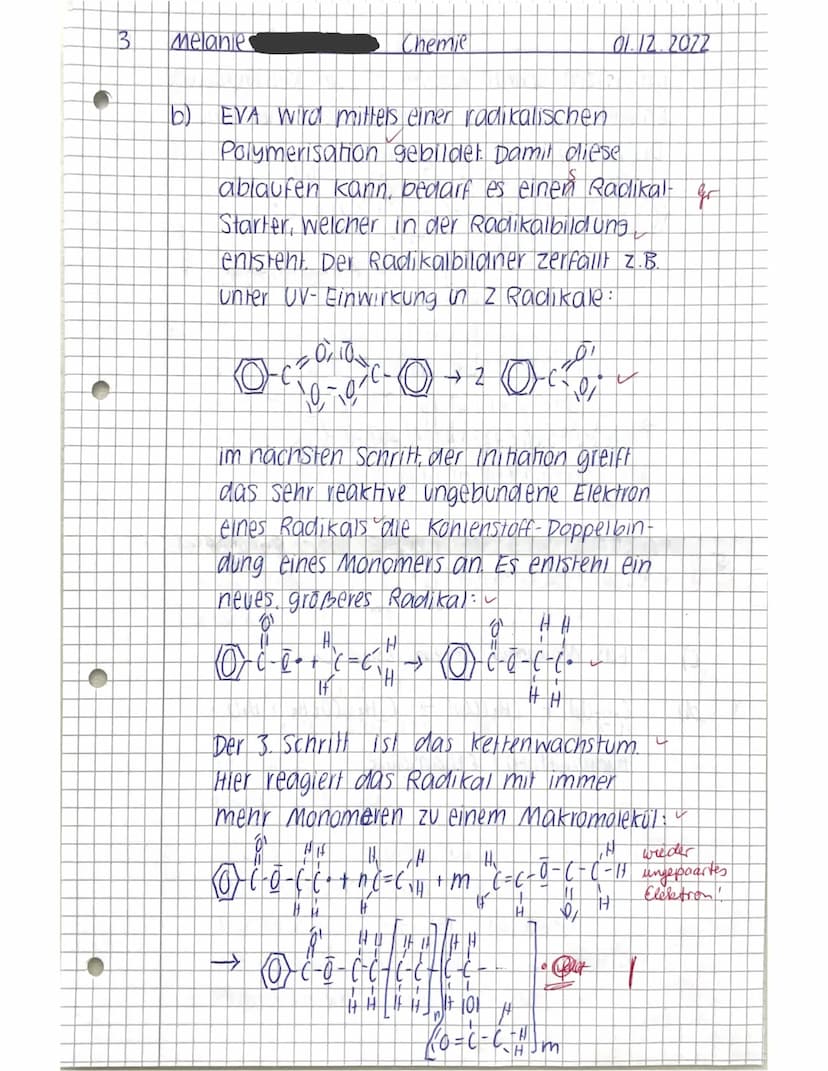 3 Melanie Chemie 01.12.2022
b) EVA wird mittels einer radikalischen
Polymerisation gebildet. Damit diese
ablaufen kann, bedarf es eines Radikal- gr
Starter, welcher in der Radikalbildung
entsteht. Der Radikalbildner zerfällt z.B.
unter UV-Einwirkung in 2 Radikale:
→ 2
im nächsten Schritt, der Initiation greift
das sehr reaktive ungebundene Elektron
eines Radikals die Kohlenstoff-Doppelbin-
dung eines Monomers an. Es entsteht ein
neues, größeres Radikal:
Der 3. Schritt ist das Kettenwachstum.
Hier reagiert das Radikal mit immer
mehr Monomeren zu einem Makromolekül:
wieder
ungepaartes
Elektron!